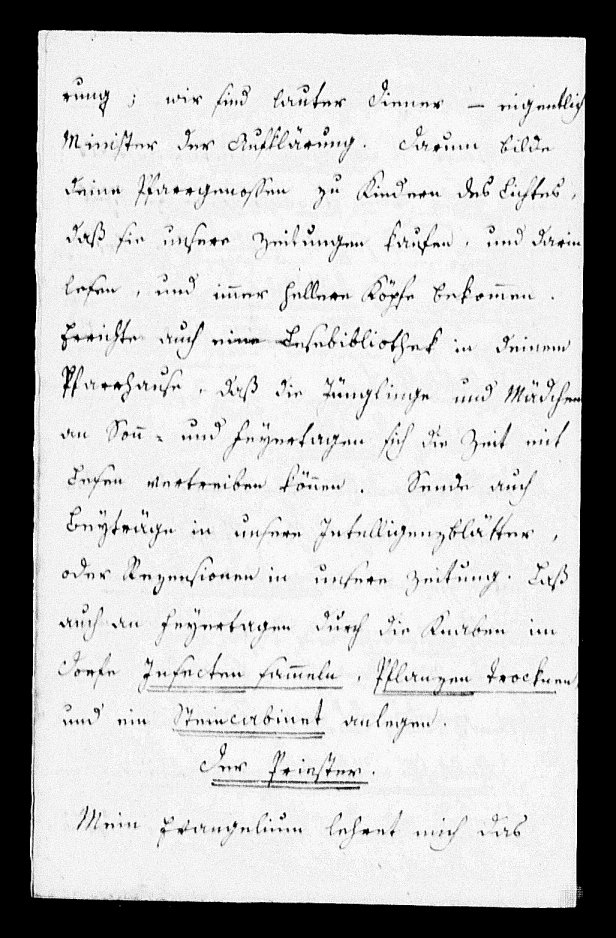 rung; wir sind lauter Diener – eigentlich
Minister der Aufklärung. Darum bilde
deine Pfarrgenossen zu Kindern des Lichtes,
daß sie unsere Zeitungen kaufen, und darin
lesen, und im̅er hellere Köpfe bekom̅en.
Errichte auch eine Lesebibliothek in deinem
Pfarrhause, daß die Jünglinge und Mädchen
an Son̅- und Feyertagen sich die Zeit mit
Lesen vertreiben kön̅en. Sende auch
Beyträge in unsere Intelligenzblätter,
oder Rezensionen in unsere Zeitung. Laß
auch an Feyertagen durch die Knaben im
Dorfe Insecten sam̅eln, Pflanzen trocknen,
und ein Steincabinet anlegen.
Der Priester.
Mein Evangelium lehret mich das